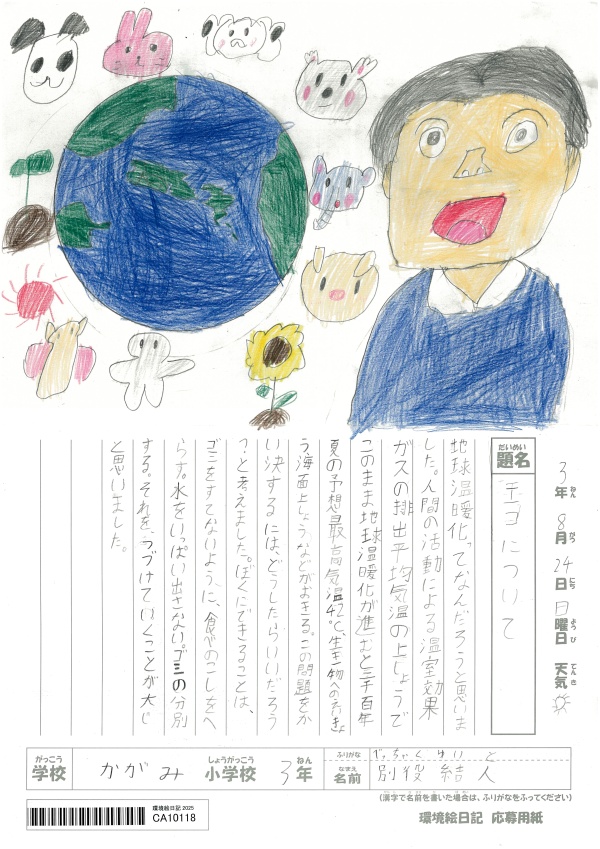 3年8月24日日曜日 天気
ねん がつ にち ようび てんき
だいめい
題名 について
地球温暖化ってなんだろうと思いま
した。人間の活動による温室効果
ガスの排出平均気温の上しょうで
このまま地球温暖化が進むと二千百年
夏の予想最高気温42℃、生き物へのえいきょ
う、海面上しょうなどがおきる。この問題をか
い決するには、どうしたらいいだろう
?と考えました。ぼくにできることは、
ゴミをすてないように、食べのこしをへ
らす。水をいっぱい出さない。ゴミの分別
する。それを、つづけていくことが大じ
と思いました。
がっこう しょうがっこう ねん
学校 かがみ 小学校 3年
ふりがな べっちゃくゆいと
なまえ
名前 別役 結人
(漢字で名前を書いた場合は、ふりがなをふってください)
環境絵日記 2025
CA10118
環境絵日記 応募用紙